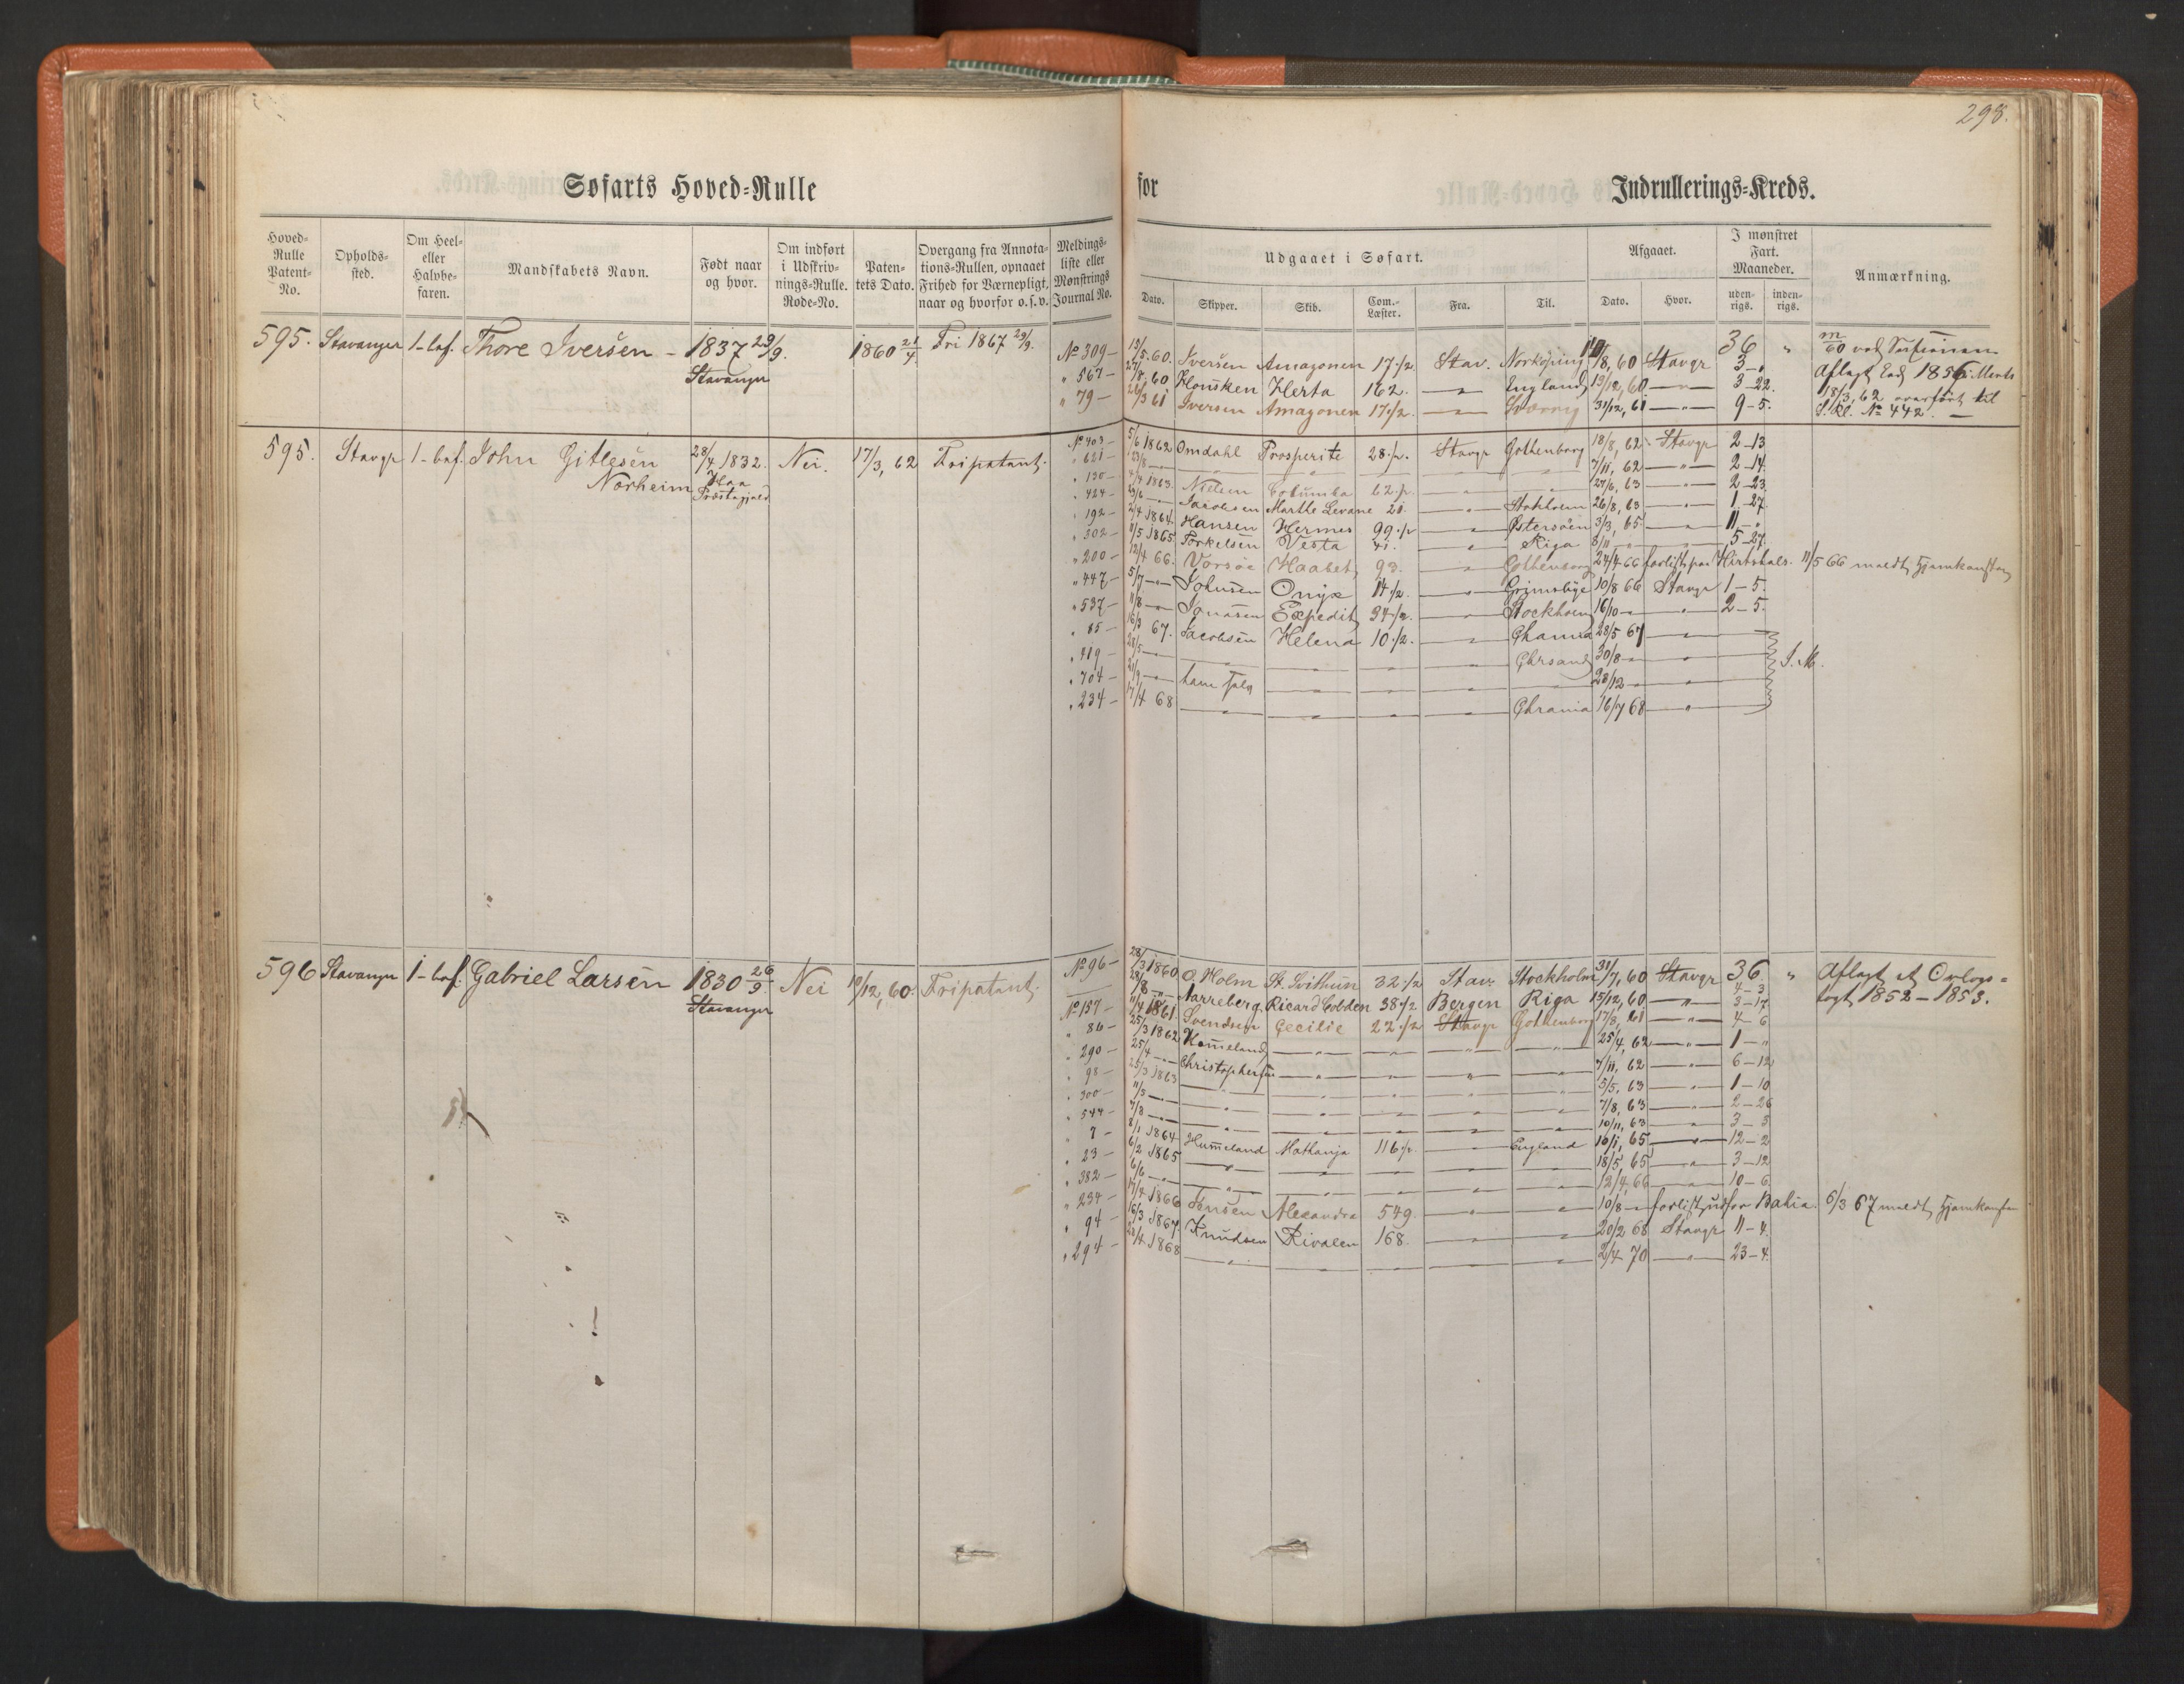 298.
Søfarts Hoved-Rulle for Indrullerings-Kreds.
Hoved-Rulle Patent-No. Opholds-sted. Om Heel- eller Halvbe-faren. Mandskabets Navn. Født naar og hvor. Om indført i Udskriv-nings-Rulle. Rode-No. Paten-tets Dato. Overgang fra Annota-tions-Rullen, opnaaet Frihed for Værnepligt, naar og hvorfor o. s. v. Meldings-liste eller Mønstrings Journal No.
Udgaaet i Søfart. Afgaaet. I mønstret Fart. Maaneder. Anmærkning.
Dato. Skipper. Skib. Com.-Læster. Fra. Til. Dato. Hvor. uden-rigs. inden-rigs.
595. Stavanger 1-bef. Thore Iversen - 1837 29/9. 1860 21/4. Fri 1867 29/9. 36 "
Stavanger
No 309 - 13/5. 60. Iversen Amazonen 17 1/2 Stav. Norkøping /8, 60 Stavgr 3 - "
" 567 - 27/8. 60 Herta 162. — " — England 13/12, 60 — " — 3 - 22.
" 79 - 26/3 61 Iversen Amazonen 17 1/2. — " — Sverrig 31/12, 61 — " — 9 - 5.
18/3, 62 overført til
S. Rl. No 442. —
595. Stavgr 1-bef. John Gitlesen 28/4 1832. Nei. 17/3, 62 Fripatent.
Norheim Haa Præstegjeld
No 403 - 5/6 1862 Omdahl Prosperite 28 1/2. Stavgr Gothenborg 18/8, 62 Stavgr 2 - 13
" 621 - 23/8 — " — 7/11, 62 — " — 2 - 14.
" 130 - 4/4 1863. Nielsen Columba 62 1/2. — " — 27/6, 63 — " — 2 - 23
" 424 - 29/6 — " — Jacobsen Marthe Levane 20. — " — Stokholm 26/8, 63 — " — 1 - 27.
" 192 - 2/4 1864. Hansen Hermes 99 1/2 — " — Østersøen 3/3, 65 — " — 11 - "
" 302 - 11/5 1865 Torkelsen Vesta — " — Riga 8/11 — " — 5 - 27.
" 200 - 12/4 66. Vorsøe Haabet 93. — " — Gothenborg 24/4 66 forlist paa Hirtshals. 11/5 66 meldt Hjemkomsten
" 447 - 5/7 — " — Johnsen Onyx 14 1/2. — " — Grimsbye 10/8 66 Stavgr 1 - 5.
" 537 - 11/8 — " — Jonasen Expedit 34 1/2. — " — Stockholm 16/10 — " — 2 - 5.
" 85 - 16/3 67. Jacobsen Helena 10 1/2. — " — Chania 28/5 67 — " —
" 419 - 28/5 — " — Chrsand 30/8 — " — I. M.
" 704 - 21/9 — " — ham selv — " — 28/12 — " —
" 234 - 17/4 68 — " — Chrania 16/7 68 — " —
596 Stavanger 1-bef. Gabriel Larsen 1830 26/9. Nei 10/12, 60. Fripatent.
Stavanger
No 96 - 28/3 1860 O. Holm St. Svithun 32 1/2 Stav. Stockholm 31/7, 60 Stavgr 36 " Aflagt et Orlogs=
28/8 — " — Narreberg Ricard Cobden 38 1/2 Bergen Riga 15/12, 60 — " — 4 - 3 togt 1852 - 1853.
No 157 - 11/4 1861 Svendsen Cecilie 22 1/2 Stavgr Gothenborg 17/8, 61 — " — 3 - 17
" 86 - 25/3 1862 Homeland — " — 25/4, 62 — " — 4 - 6
" 290 - 25/4 — " — Christophersen — " — 7/11, 62 — " — 1 - "
" 98 - 25/3 1863 — " — 5/5, 63 — " — 6 - 12
" 300 - 11/5 — " — 7/8, 63 — " — 1 - 10
" 544 - 7/8 — " — 10/11, 63 — " — 2 - 26
" 7 - 8/1 1864 Humeland Mathanja 116 1/2. — " — England 10/1, 65 — " — 3 - 3
" 23 - 6/2 1865 — " — 18/5, 65 — " — 12 - 2
" 382 - 6/6 — " — 12/4, 66 — " — 3 - 12
" 254 - 17/4 1866 Jensen Alexandra 549. — " — 10/8 — forlist udfor Bahia. 6/3 67 meldt Hjemkomsten 10 - 6
" 94 - 16/3 1867. Knudsen Rivalen 168. — " — 20/2 68 Stavgr 11 - 4.
" 294 - 28/4 1868 — " — 2/4 70 — " — 23 - 4.